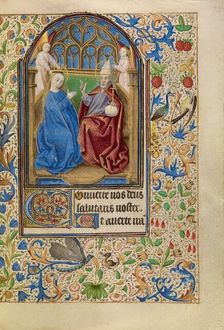 Onuerte nos deus
salutaris noster.
Et auerte ira